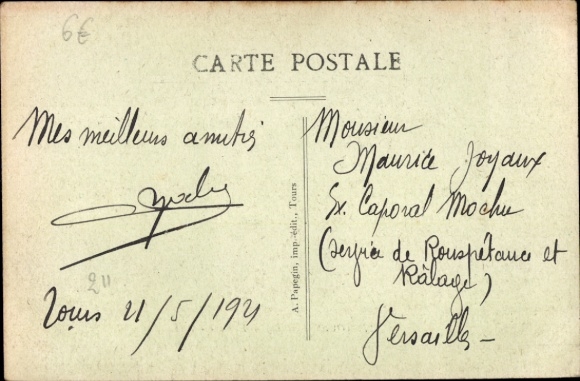 6€
CARTE POSTALE
Mes meilleurs amitiés
Tours 21/5/1921
24
A. Papegin, imp.-édit., Tours
Monsieur
Maurice Joyaux
Ex. Caporal Mochu
(service de Rouspétance et
Râlage)
Versailles -